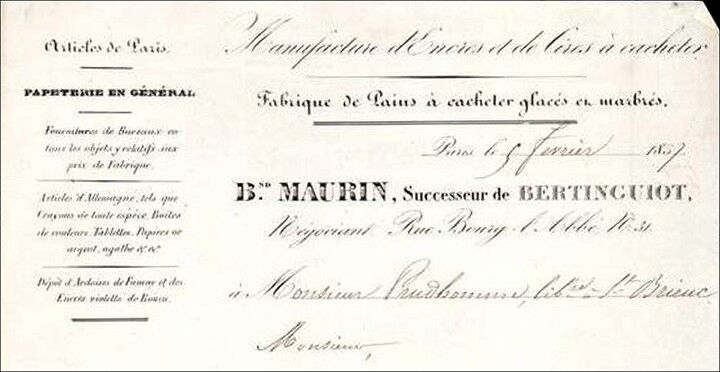 Articles de Paris.
PAPETERIE EN GÉNÉRAL
Fournitures de Bureaux et
tous les objets y relatifs aux
prix de Fabrique.
Articles d'Allemagne, tels que
Crayons de toute espèce, Boites
de couleurs, Tablettes, Papiers or
argent, agathe & &
Dépôt d'Ardoises de Fumay et des
Encres violette de Rouen.
Manufacture d'Encres et de Cires à cacheter,
Fabrique de Pains à cacheter glacés et marbrés.
Paris le 5 février 1837
B.ND MAURIN, Successeur de BERTINGUIOT,
Négociant, Rue Bourg-l'Abbé, N.31.
à Monsieur Prudhomme, libre à St Brieuc
Monsieur,